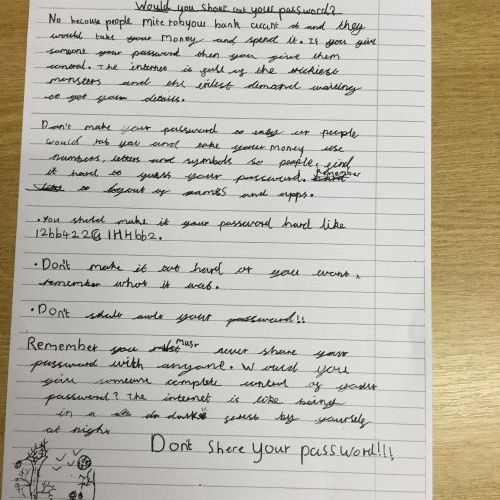 Would you shout out your password?
No because people mite rob your bank account and they
would take your money and spend it. If you give
someone your password then you give them
control. The internet is full of the trickiest
monsters and the evilest demand waiting
to get your details.
Don't make your password to easy or people
would rob you and take your money use
numbers, letters and symbols so people find
it hard to guess your password. Remember
to logout of games and apps.
• You should make it your password hard like
12bb422G1HHbb2.
• Don't make it too hard or you want
remember what it was.
• Don't your password!!
Remember you must never share your
password with anyone. Would you
give someone complete control of your
password? The internet is like being
in a dark forest by yourself
at night.
Don't share your password!!!